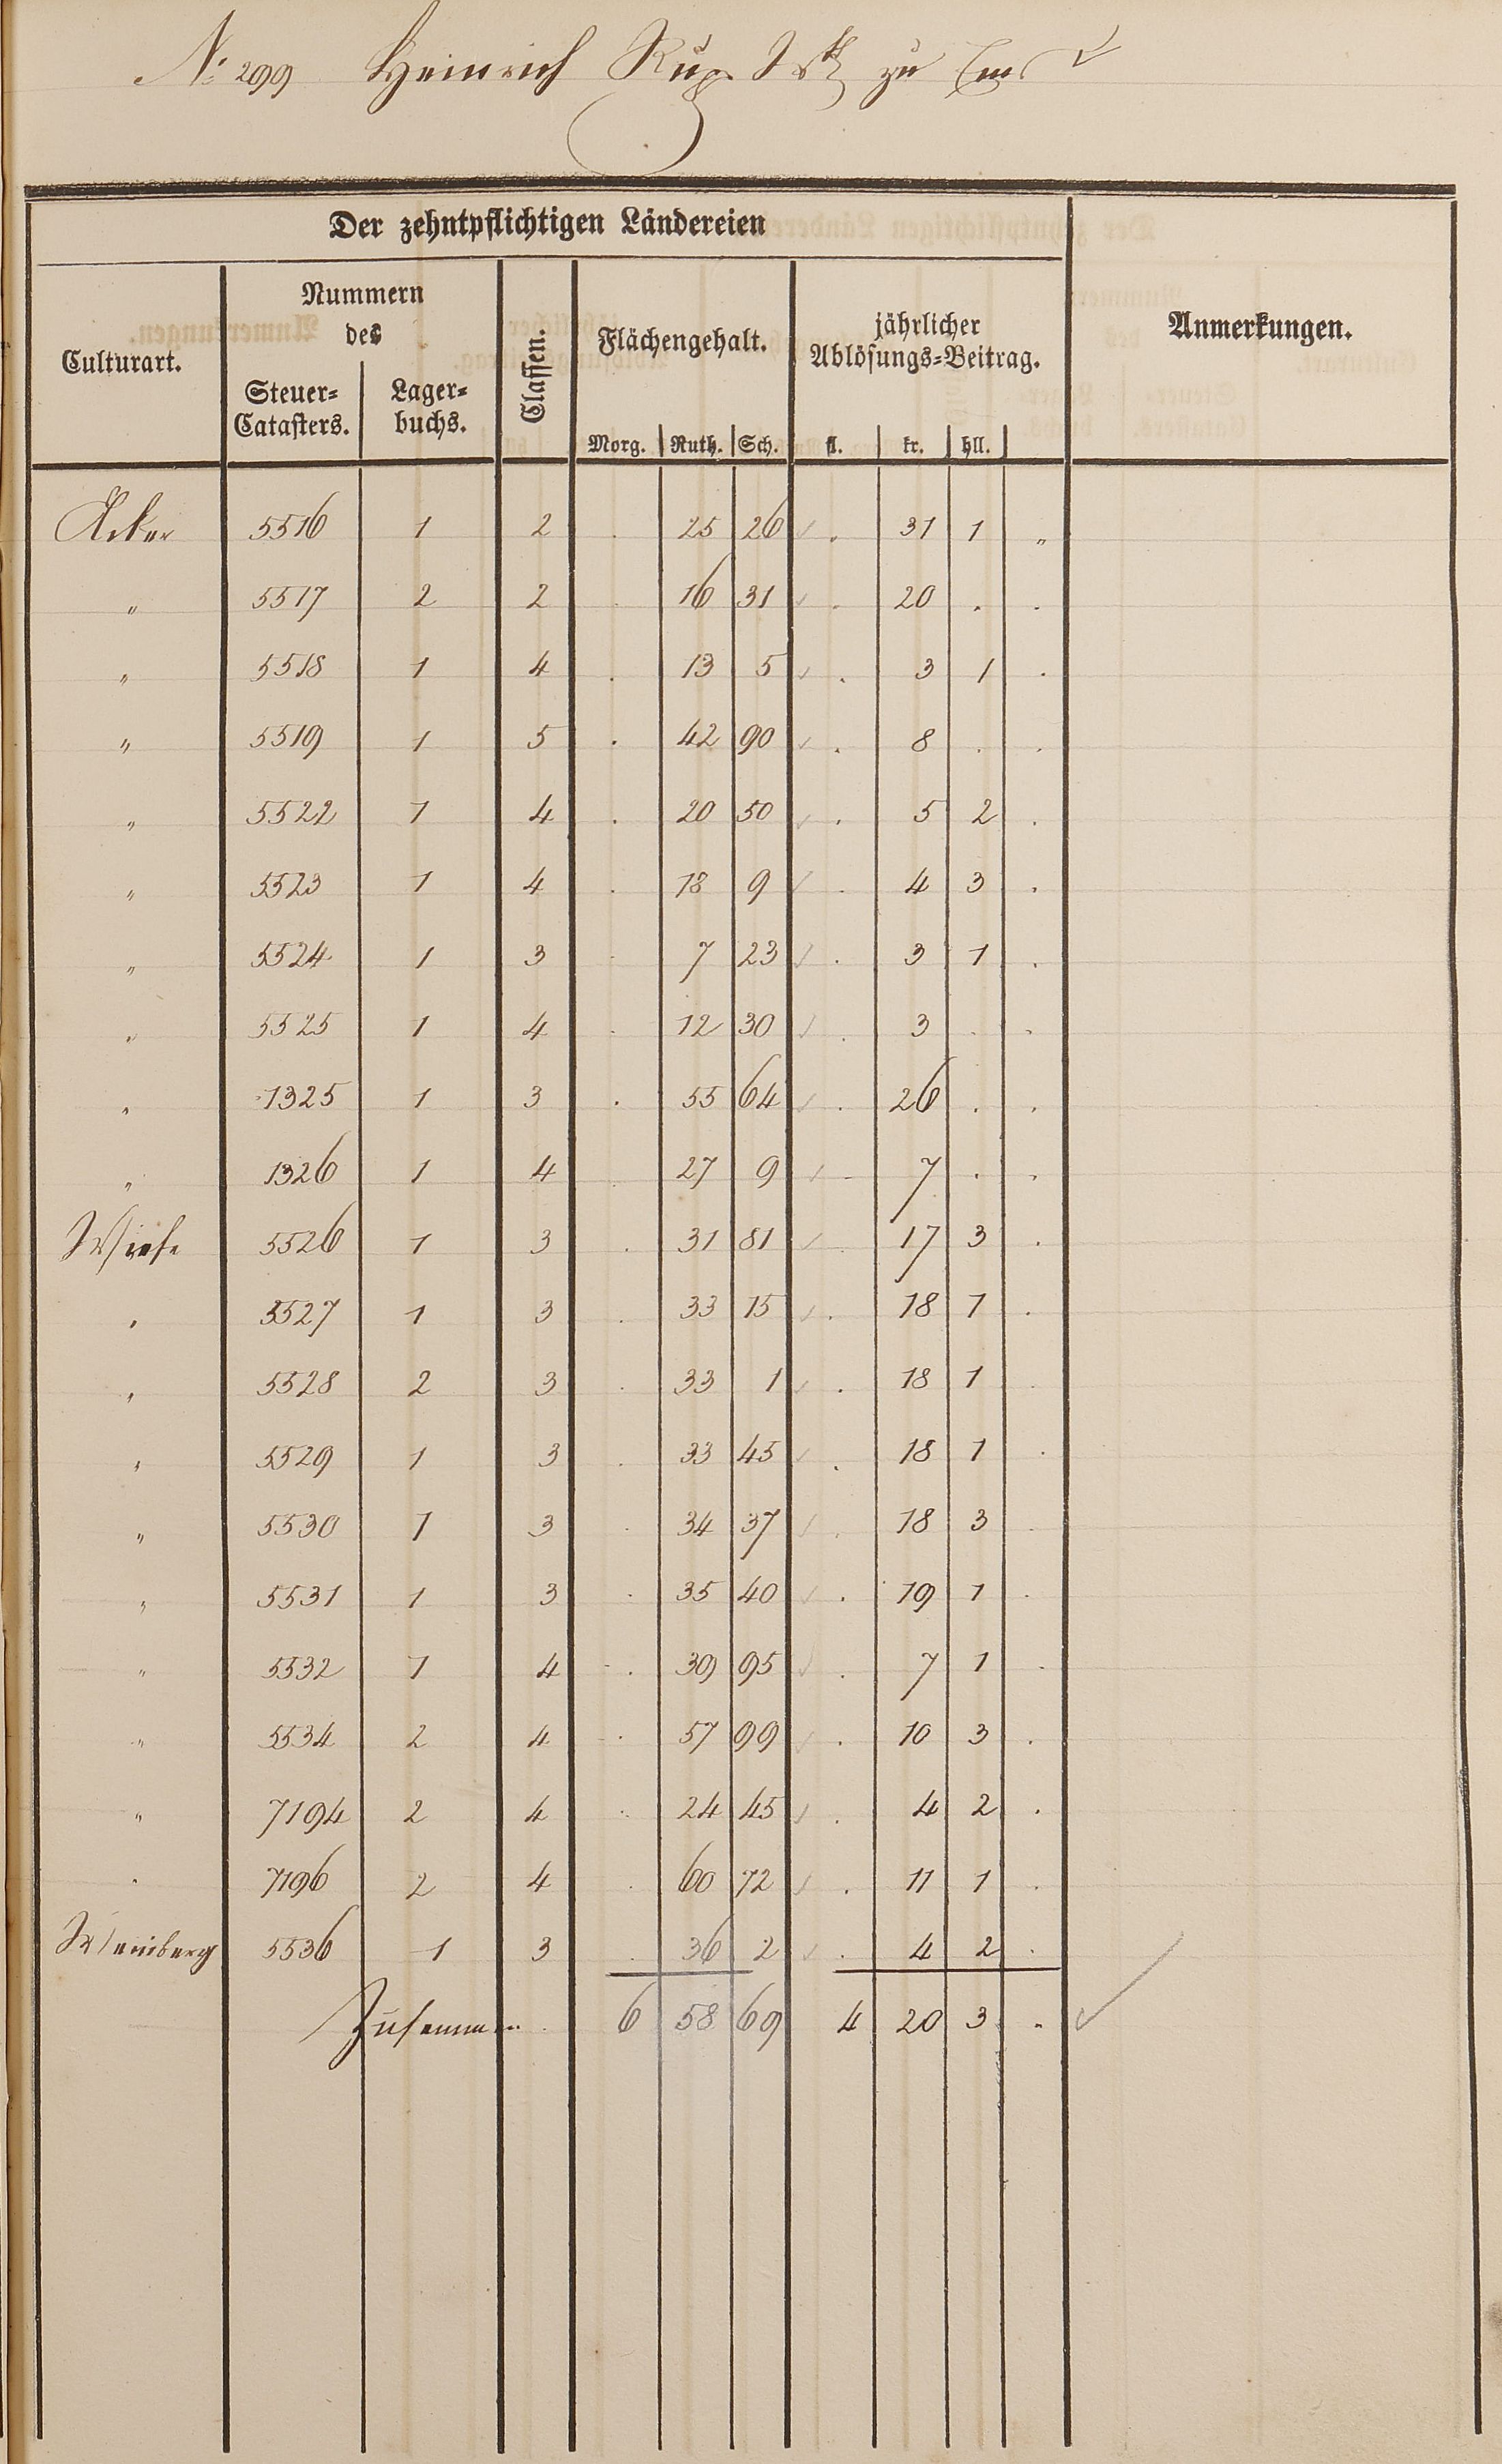 No 299 Heinrich Rup zu Ems
Der zehntpflichtigen Ländereien
Culturart. Nummern des Steuer-Catasters. Lager-buchs. Classen. Flächengehalt. Morg. Ruth. Sch. jährlicher Ablösungs-Beitrag. fl. kr. hll. Anmerkungen.
Acker 5516 1 2 . 25 26 . 31 1 "
" 5517 2 2 . 16 31 . 20 . .
" 5518 1 4 . 13 5 . 3 1 .
" 5519 1 5 . 42 90 . 8 . .
" 5522 1 4 . 20 50 . 5 2 .
" 5523 1 4 . 18 9 . 4 3 .
" 5524 1 3 . 7 23 . 3 1 .
" 5525 1 4 . 12 30 . 3 . .
" 1325 1 3 . 55 64 . 26 . .
" 1326 1 4 27 9 . 7 . .
Wiese 5526 1 3 . 31 81 . 17 3 .
" 5527 1 3 . 33 15 . 18 1 .
" 5528 2 3 . 33 1 . 18 1 .
" 5529 1 3 . 33 45 . 18 1 .
" 5530 1 3 . 34 37 . 18 3 .
" 5531 1 3 . 35 40 . 19 1 .
" 5532 1 4 . 39 95 . 7 1 .
" 5534 2 4 . 57 99 . 10 3 .
" 7194 2 4 . 24 45 . 4 2 .
" 7196 2 4 . 60 72 . 11 1 .
Weinberg 5536 1 3 . 36 2 . 4 2 .
Zusammen . 6 58 69 4 20 3 "